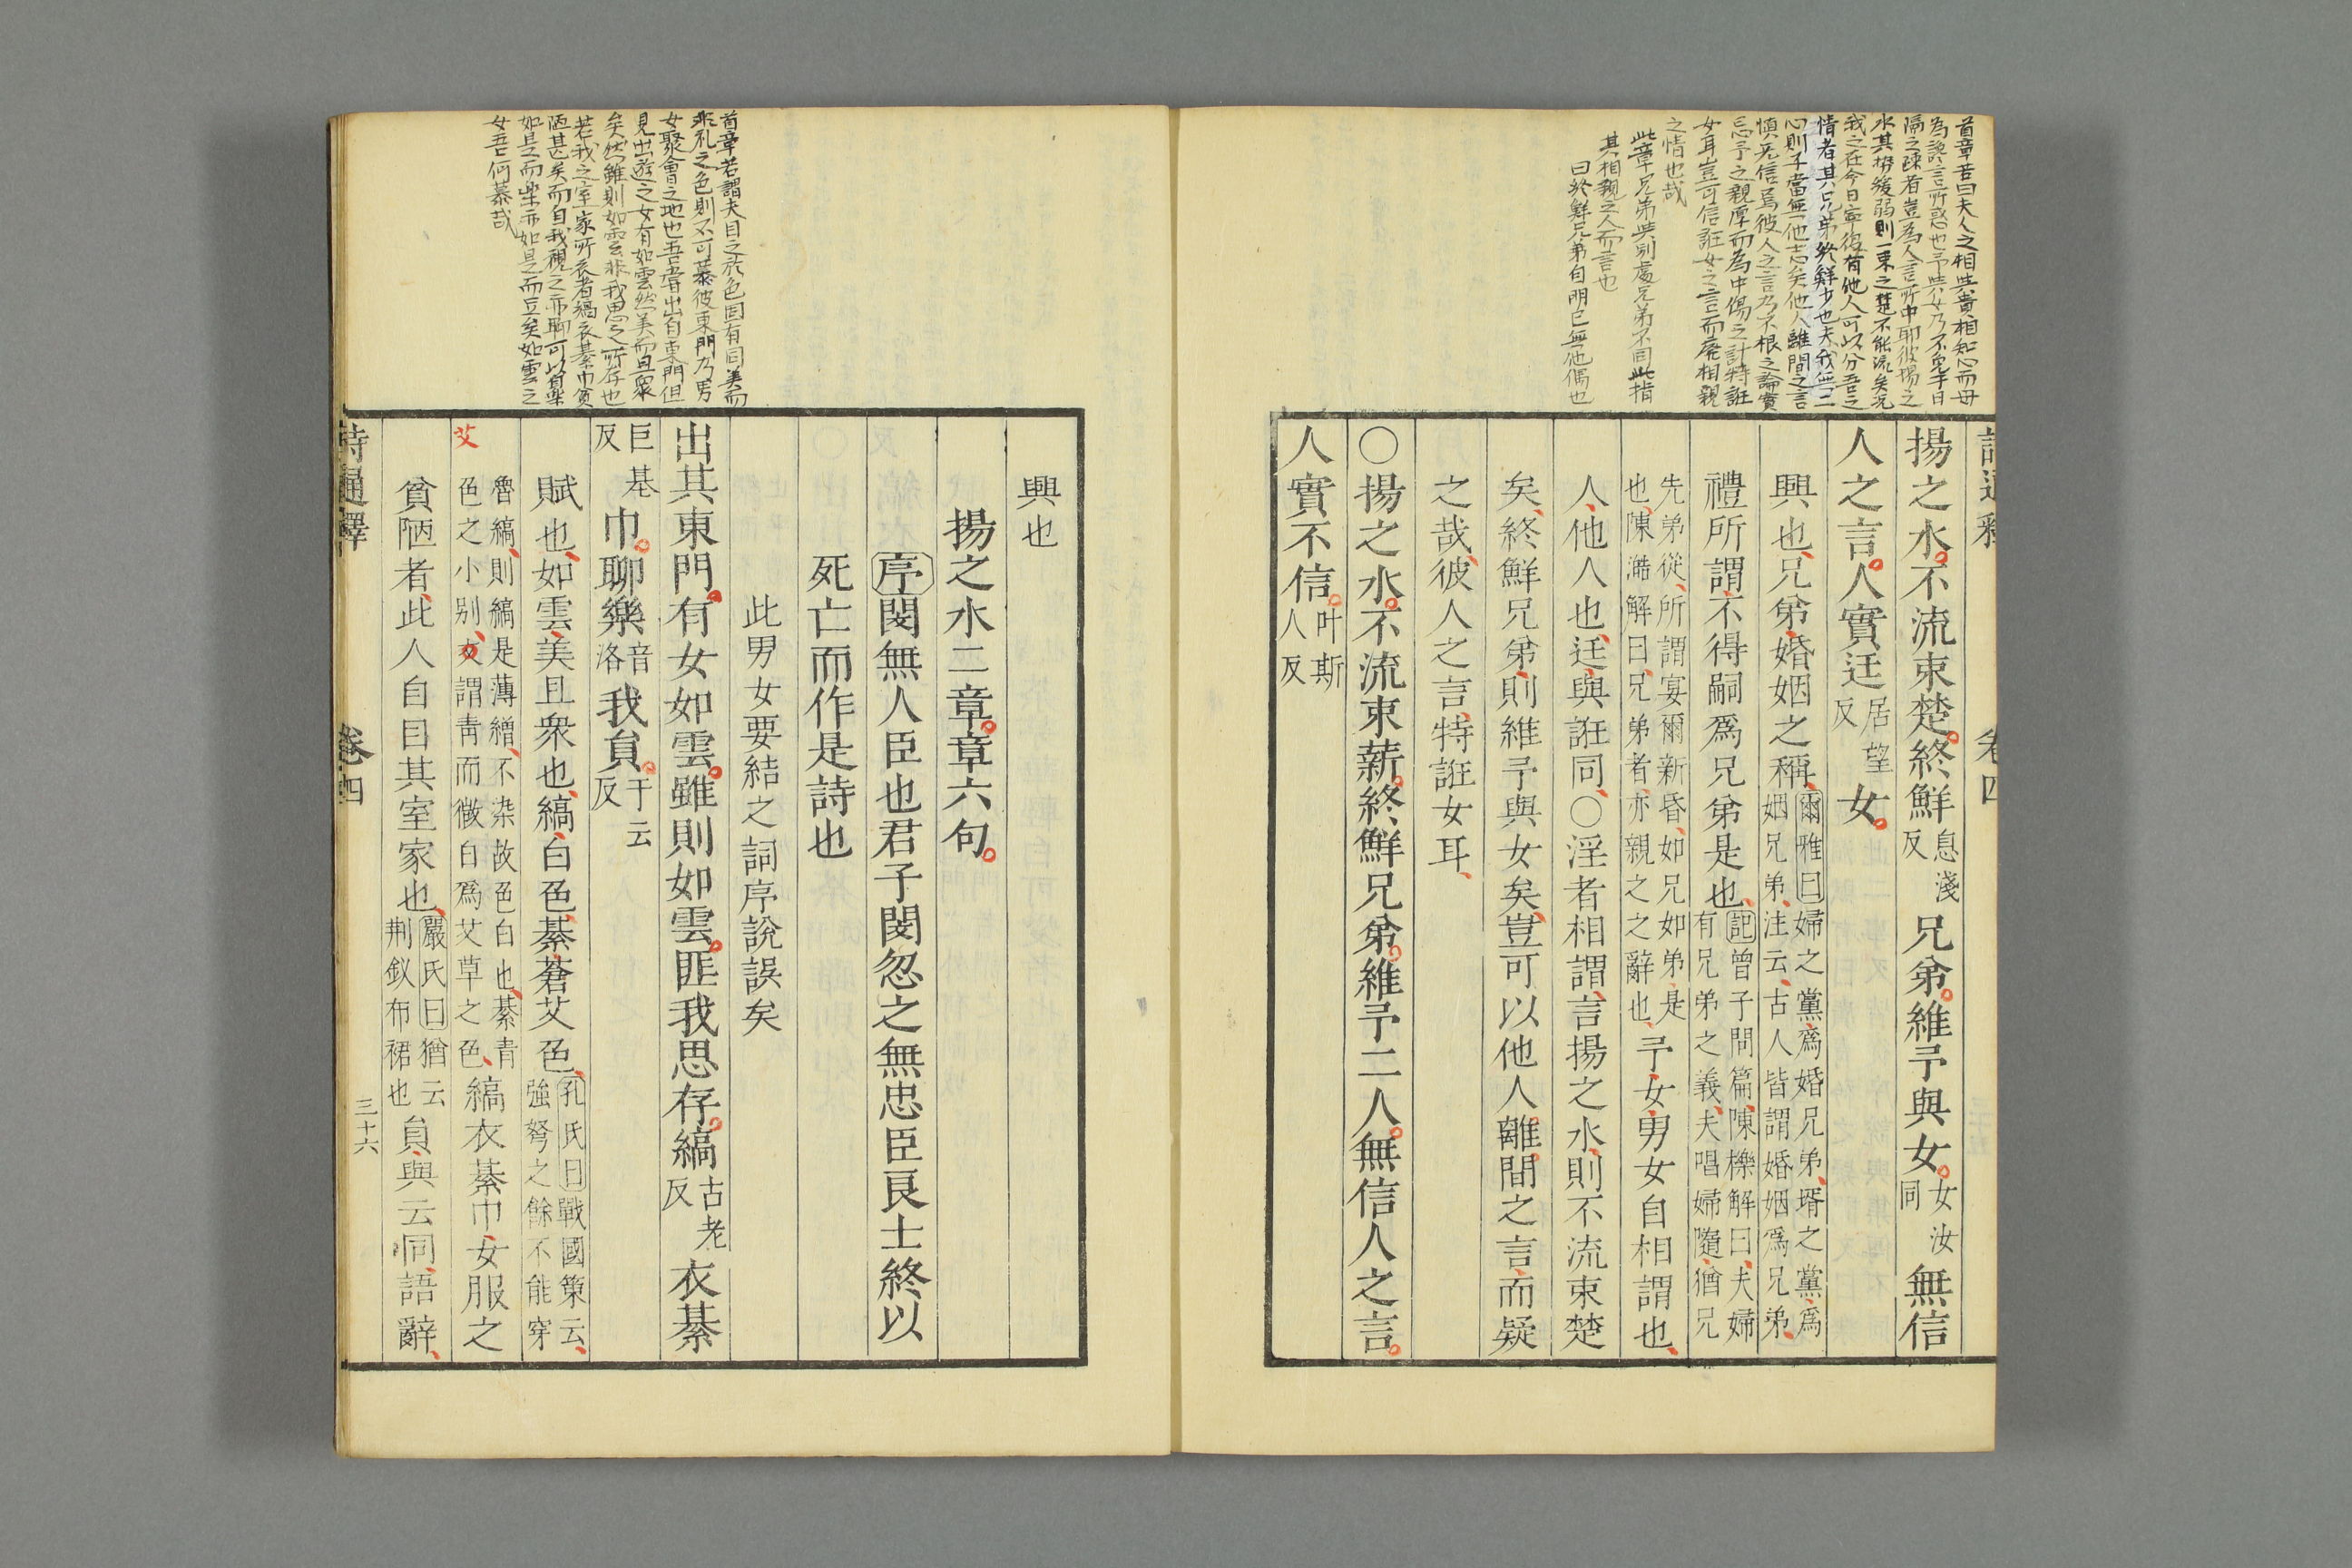 首章苦曰夫人之相與貴相知心而毋
為讒言所惑也予與女乃不免乎日
隔之疎者豈為人言所中耶彼揚之
水其勢緩弱則一束之楚不能流矣況
我之在今日寧復有他人可以分吾之
情者其兄弟終鮮少也夫我無二
心則子當無他志矣他人離間之言
慎无信焉彼人之言乃不根之論實
忘予之親厚而為中傷之計特誑
女耳豈可信誑女之言而廃相親
之情也哉
此章兄弟與別處兄弟不同此指
其相親之人而言也
曰終鮮兄弟自明已無他偶也
卷四
揚之水不流束楚終鮮息淺反兄弟維予與女女汝同無信
人之言人實迋居望反女
興也兄弟婚姻之稱爾雅曰婦之黨爲婚兄弟壻之黨爲姻兄弟注云古人皆謂婚姻爲兄弟
禮所謂不得嗣爲兄弟是也記曾子問篇陳櫟解曰夫婦有兄弟之義夫唱婦隨猶兄
先弟從所謂宴爾新昏如兄如弟是也陳澔解曰兄弟者亦親之之辭也予女男女自相謂也
人他人也迋與誑同○淫者相謂言揚之水則不流束楚
矣終鮮兄弟則維予與女矣豈可以他人離間之言而疑
之哉彼人之言特誑女耳
○揚之水不流束薪終鮮兄弟維予二人無信人之言
人實不信叶斯人反
首章若謂夫目之於色固有同美而
非礼之色則不可慕彼東門乃男
女聚會之地也吾嘗出自東門但
見出遊之女有如雲然美而且衆
矣然雖則如雲非我思之所存也
若我之室家所衣者縞衣綦巾貧
陋甚矣而自我視之亦聊可以自樂
如是而樂亦如是而足矣如雲之
女吾何慕哉
興也
揚之水二章章六句
序閔無人臣也君子閔忽之無忠臣良士終以
死亡而作是詩也
此男女要結之詞序說誤矣
出其東門有女如雲雖則如雲匪我思存縞古老反衣綦
巨基反巾聊樂音洛我員于云反
賦也如雲美且衆也縞白色綦蒼艾色孔氏曰戰國策云強弩之餘不能穿
艾
魯縞則縞是薄繒不染故色白也綦青色之小别艾謂青而微白爲艾草之色縞衣綦巾女服之
貧陋者此人自目其室家也嚴氏曰猶云荆釵布裙也員與云同語辭
詩通釋
卷四
三十六